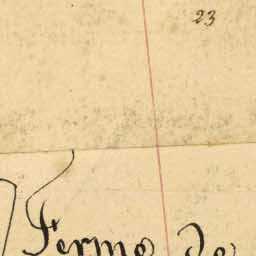 23
Fermo de